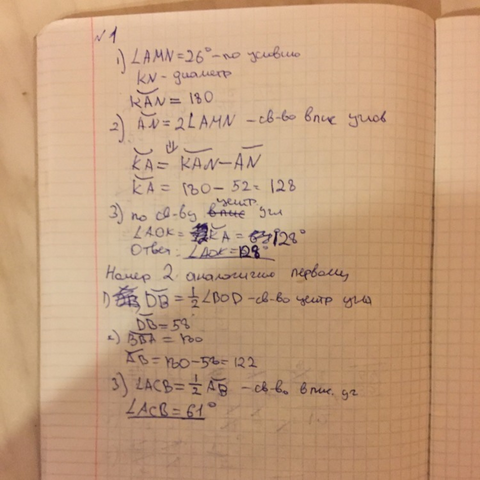 №1
1) ∠AMN = 26° – по условию
KN – диаметр
◡KAN = 180
2) ◡AN = 2∠AMN – св-во впис углов
⇓
◡KA = ◡KAN – ◡AN
◡KA = 180 – 52 = 128
3) по св-ву центр угл
∠AOK = ◡KA = 128°
Ответ: ∠AOK = 128°
Номер 2. аналогично первому
1) ◡DB = 1/2 ∠BOD – св-во центр угла
◡DB = 58
2) = 180
◡AB = 180 – 58 = 122
3) ∠ACB = 1/2 ◡AB – св-во впис. уг
∠ACB = 61°